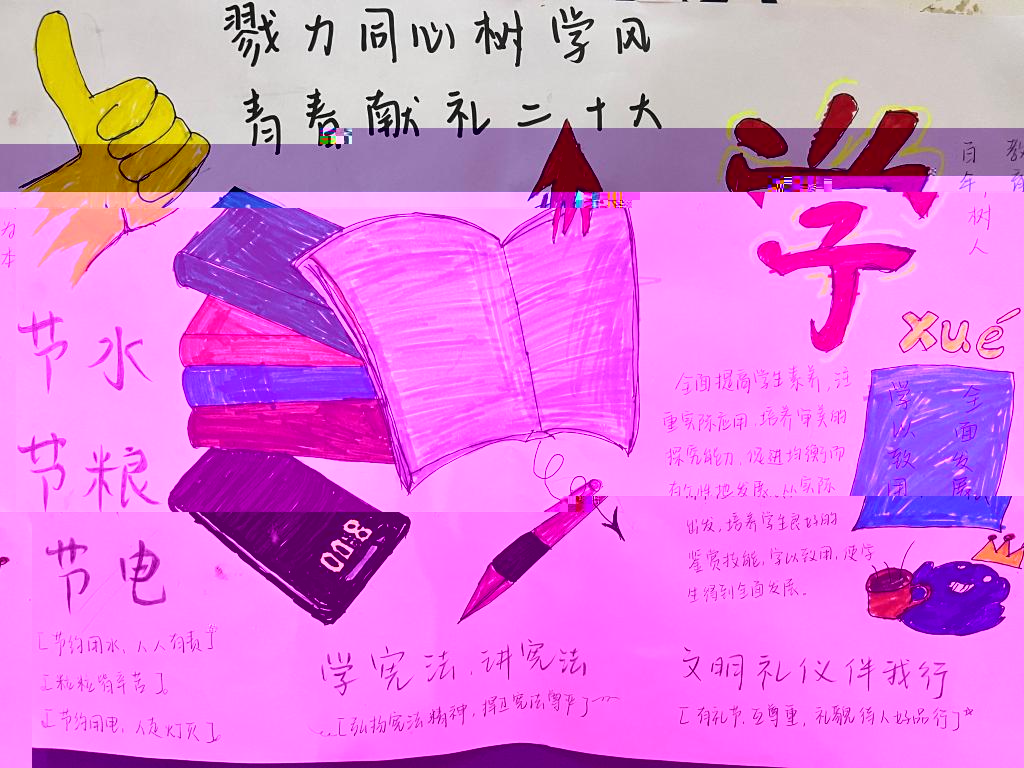 戮力同心树学风
青春献礼二十大
学
xué
百年,树人
教育
为本
节水
节粮
节电
全面提高学生素养,注
重实际应用,培养审美的
探究能力,促进均衡而
有个性地发展。从实际
出发,培养学生良好的
鉴赏技能,学以致用,使学
生得到全面发展。
全面发展
学以致用.
00:8
[节约用水,人人有责]
[粒粒皆辛苦]。
[节约用电,人走灯灭]。
学宪法,讲宪法
[弘扬宪法精神,捍卫宪法尊严]
文明礼仪伴我行
[有礼节,互尊重,礼貌待人好品行]